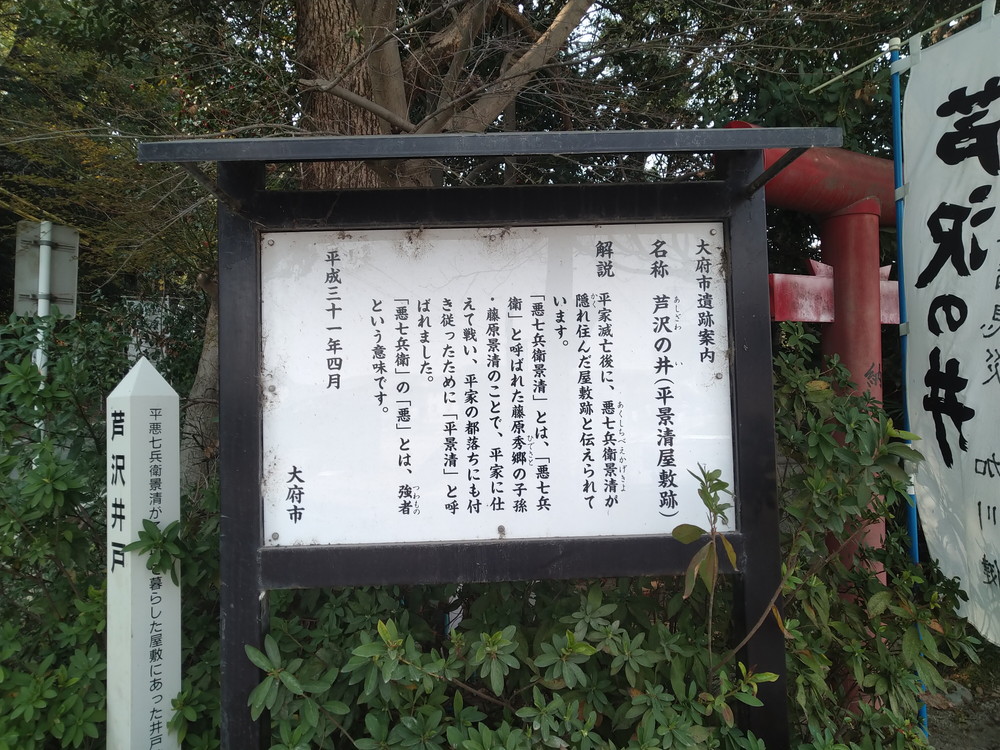 大府市遺跡案内
名称 芦沢の井(平景清屋敷跡)
あしざわ い
解説 平家滅亡後に、悪七兵衛景清が
あくしちべえかげきよ
隠れ住んだ屋敷跡と伝えられて
かく
います。
「悪七兵衛景清」とは、「悪七兵
衛」と呼ばれた藤原秀郷の子孫
ひでさと
・藤原景清のことで、平家に仕
えて戦い、平家の都落ちにも付
き従ったために「平景清」と呼
ばれました。
「悪七兵衛」の「悪」とは、強者
つわもの
という意味です。
平成三十一年四月
大府市
平悪七兵衛景清が
暮らした屋敷にあった井戸
芦沢井戸
芦沢の井
加川